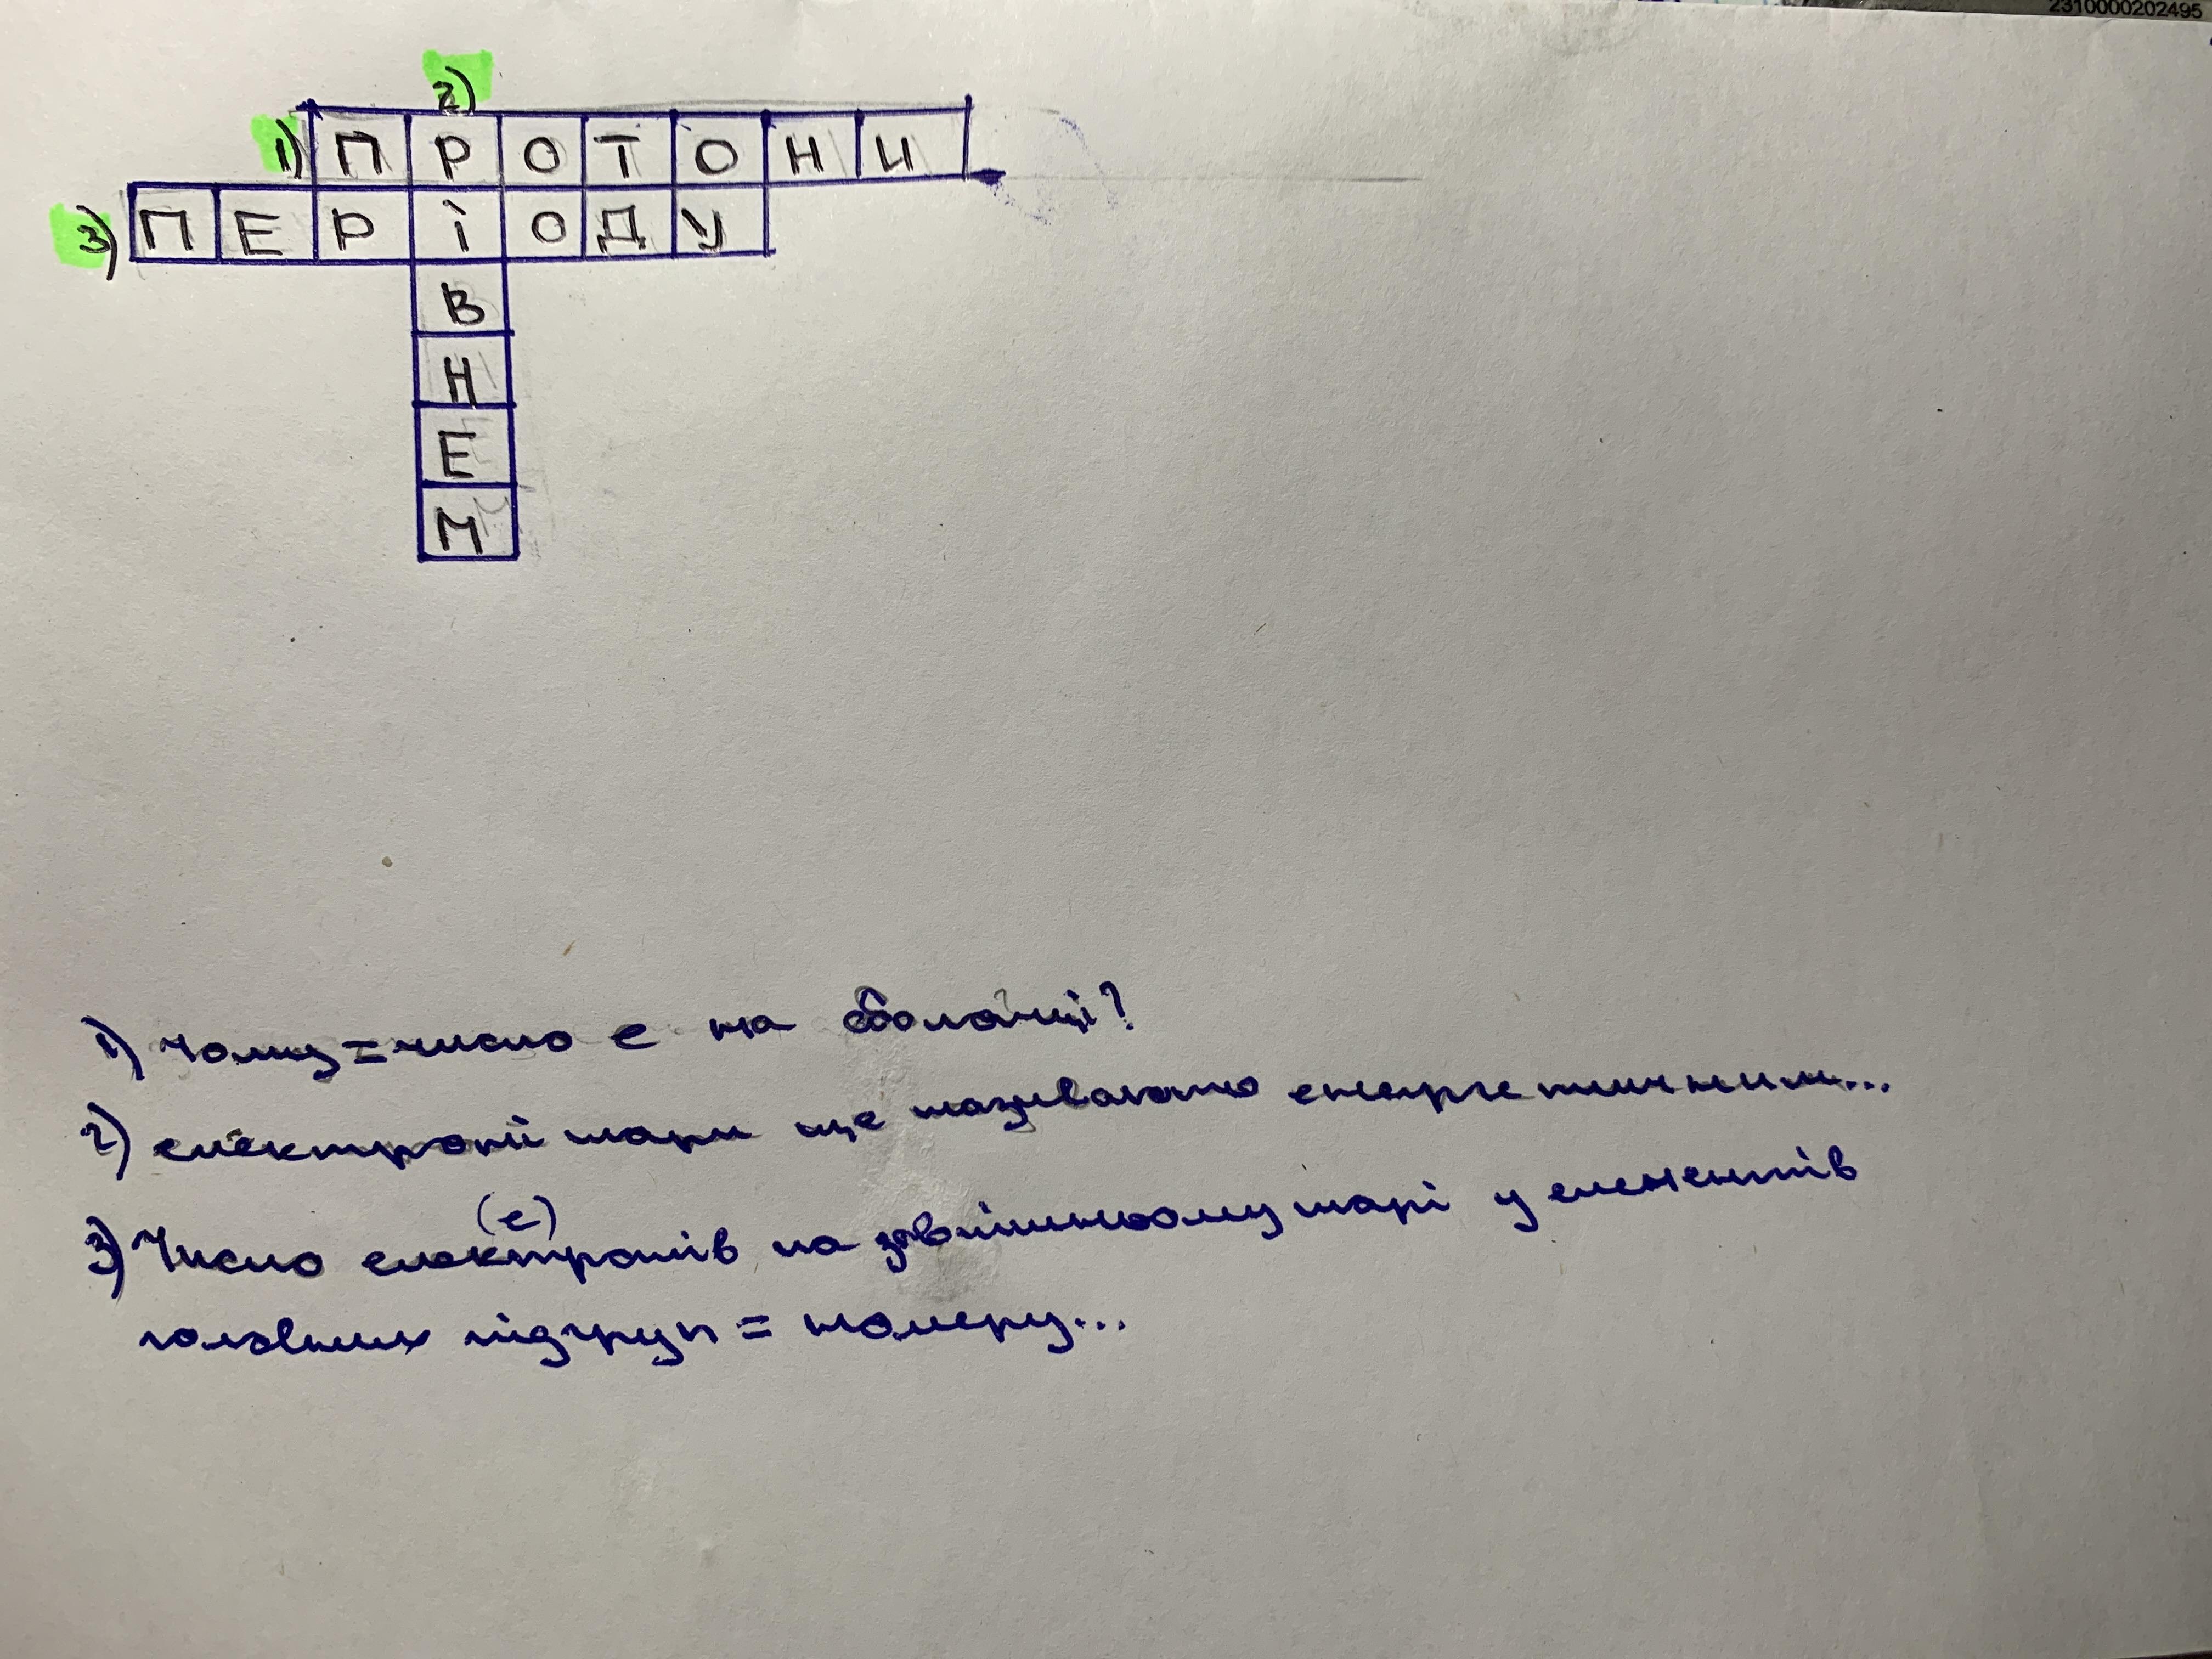 2310000202495
2)
1) ПРОТОНИ
3) ПЕРІОДУ
В
Н
Е
М
1) Чому = число е на оболонці?
2) електроні шари ще називають енергетичним...
(е)
3) Число електронів на зовнішньому шарі у елементів
головних підгруп = номеру...